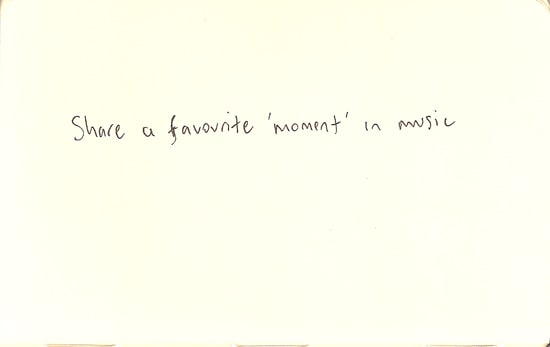 Share a favourite 'moment' in music